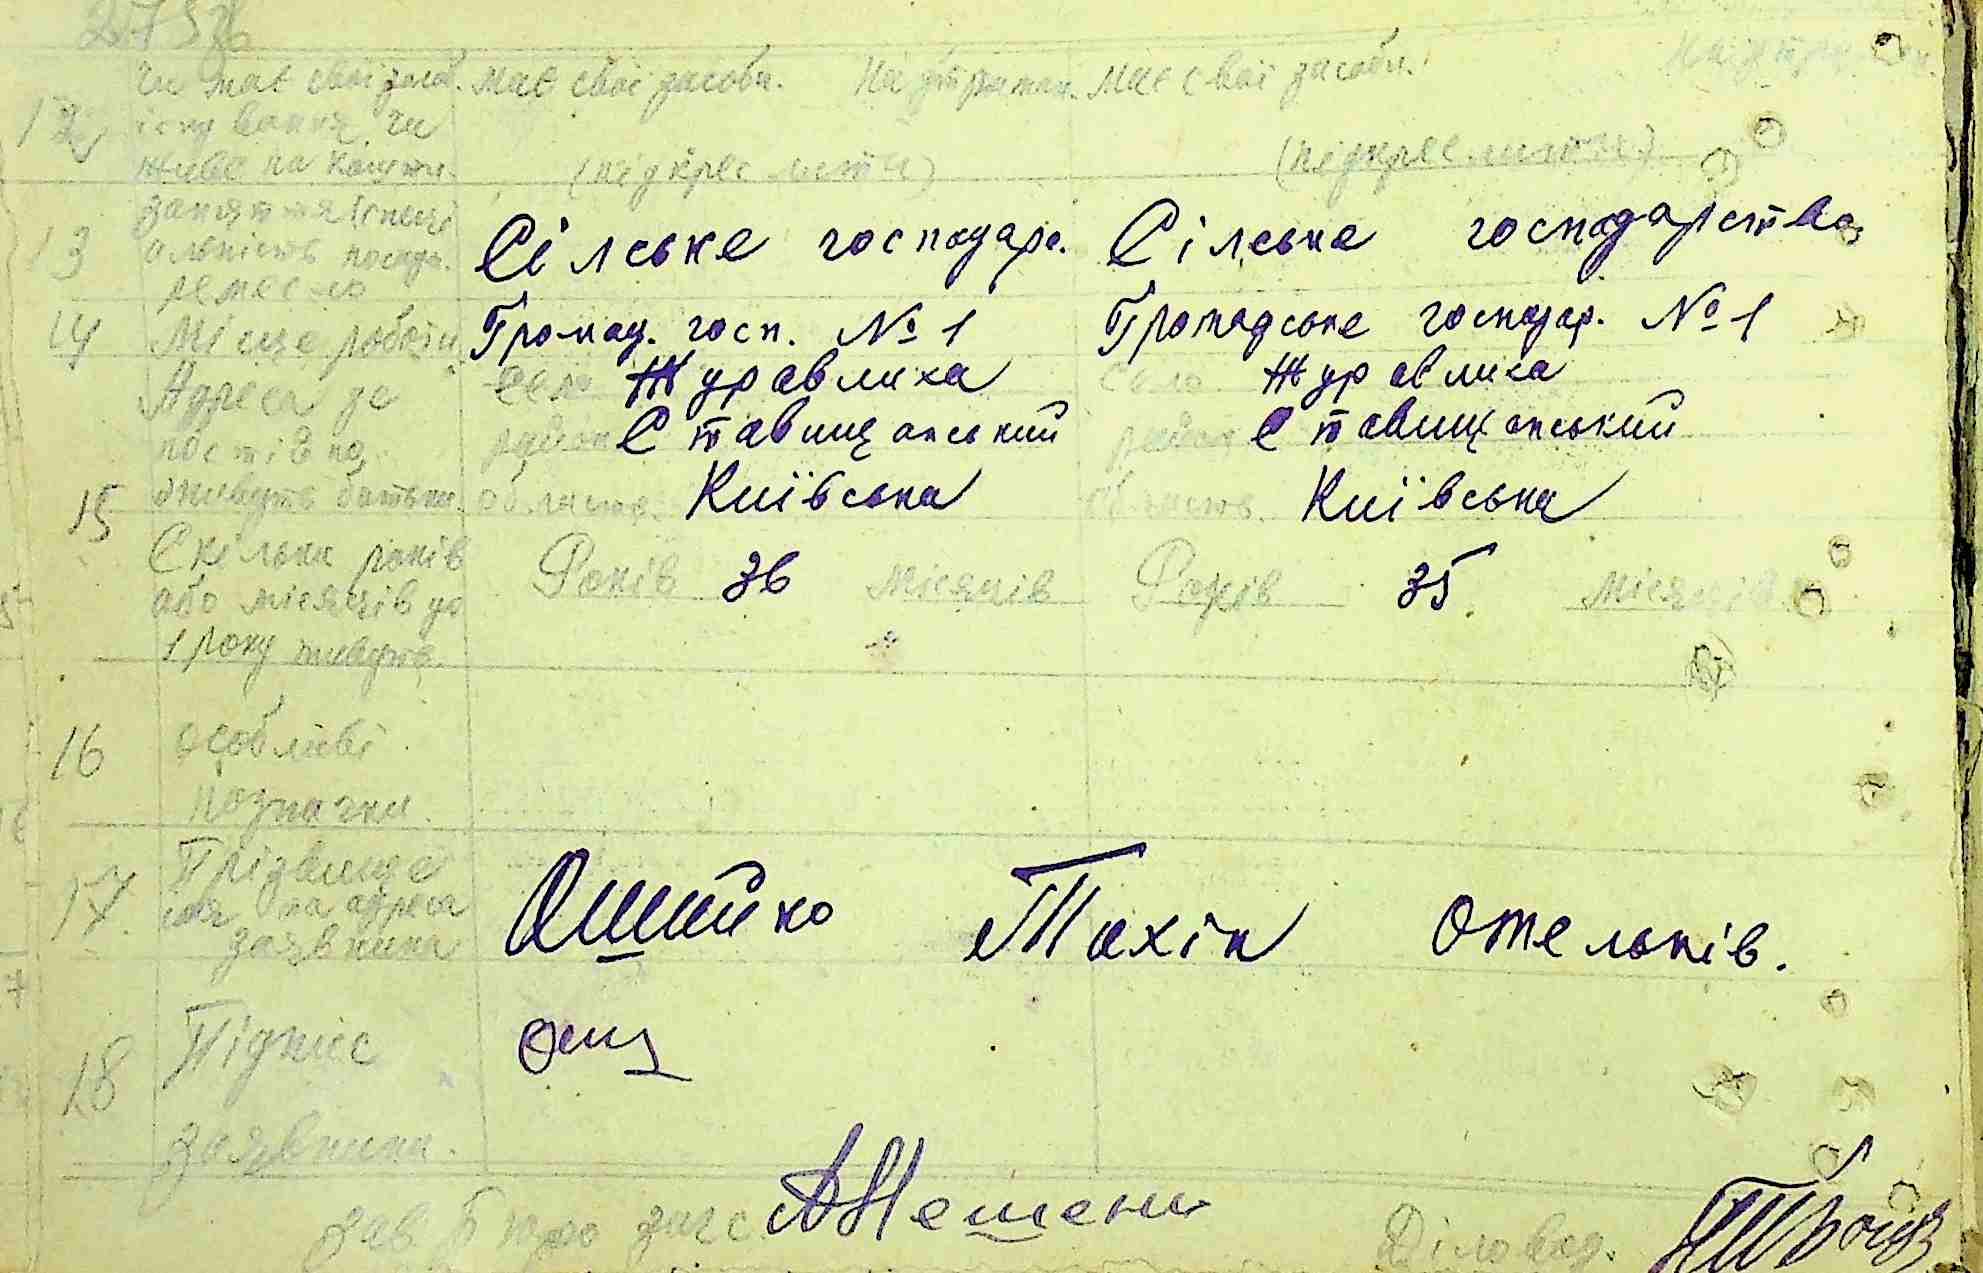 12 Чи має свої засоб. має свої засоби. На утриман. Має свої засоби. На утриман.
існування чи
живе на кошти. (підкреслити) (підкреслити)
13 заняття (спеці
альність посада. Сілське господарс. Сілська господарства
ремесло
14 Місце роботи Громад. госп. № 1 Громадське господар. № 1
Адреса де село Журавлиха село Журавлиха
постійно район Ставищанський район Ставищанський
15 живуть батьки. область. Київська область. Київська
Скільки років Років 36 місяців Років 35 місяців
або місяців до
1 року живуть.
16 особливі
позначки.
17 Прізвище
імя та адреса Ошийко Тахін Омельків.
заявника
18 Підпис Ош
заявника.
Зав. Бюро загс Діловод.